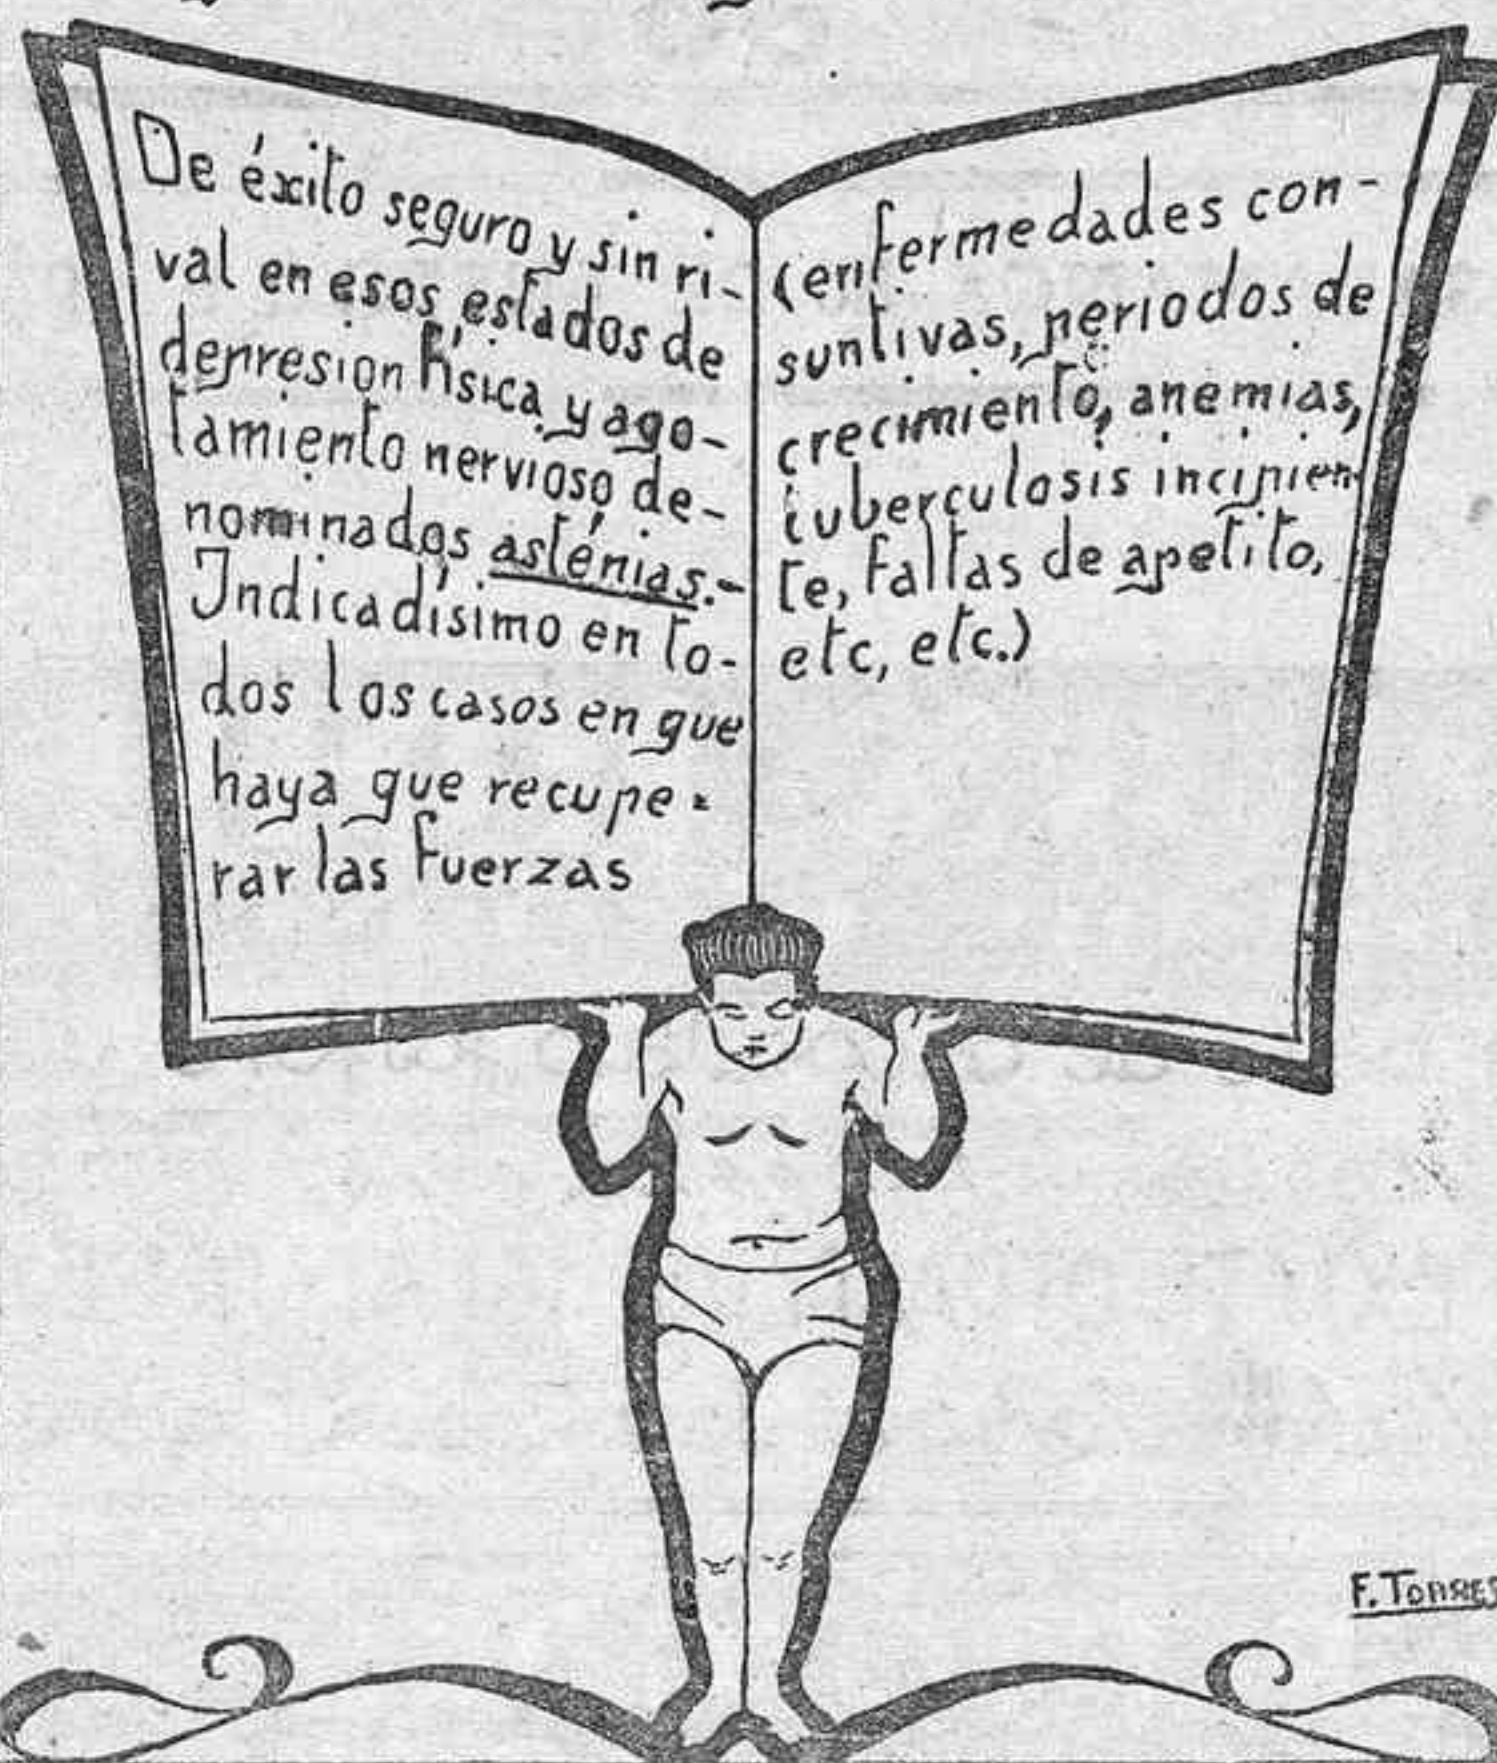 De éxito seguro y sin ri-
val en esos estados de
depresion física y ago-
tamiento nervioso de-
nominados asténias.-
Indicadísimo en to-
dos los casos en que
haya que recupe-
rar las fuerzas
(enfermedades con-
suntivas, periodos de
crecimiento, anemias,
tuberculosis incipien-
te, faltas de apetito,
etc, etc.)
F. TORRES